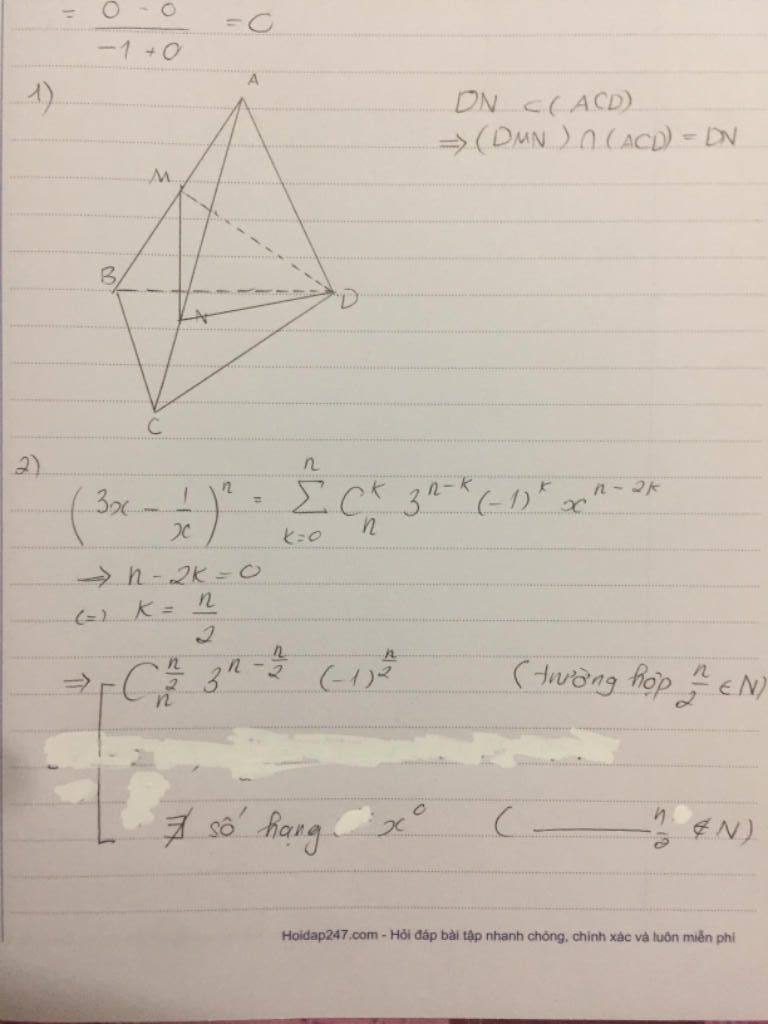 = (0 - 0)/(-1 + 0) = 0
1)
A
DN ⊂ (ACD)
⇒ (DMN) ∩ (ACD) = DN
M
B
D
N
C
2)
(3x - 1/x)^n = ∑_{k=0}^{n} C_n^k 3^{n-k} (-1)^k x^{n-2k}
⇒ n - 2k = 0
(=) k = n/2
⇒ C_n^{n/2} 3^{n - n/2} (-1)^{n/2} (trường hợp n/2 ∈ N)
∄ số hạng x^0 ( ——— n/2 ∉ N)
Hoidap247.com - Hỏi đáp bài tập nhanh chóng, chính xác và luôn miễn phí